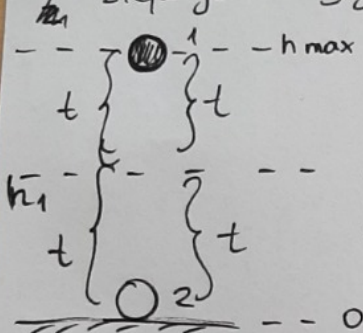 1 h max
t t
h1
t t
2
0